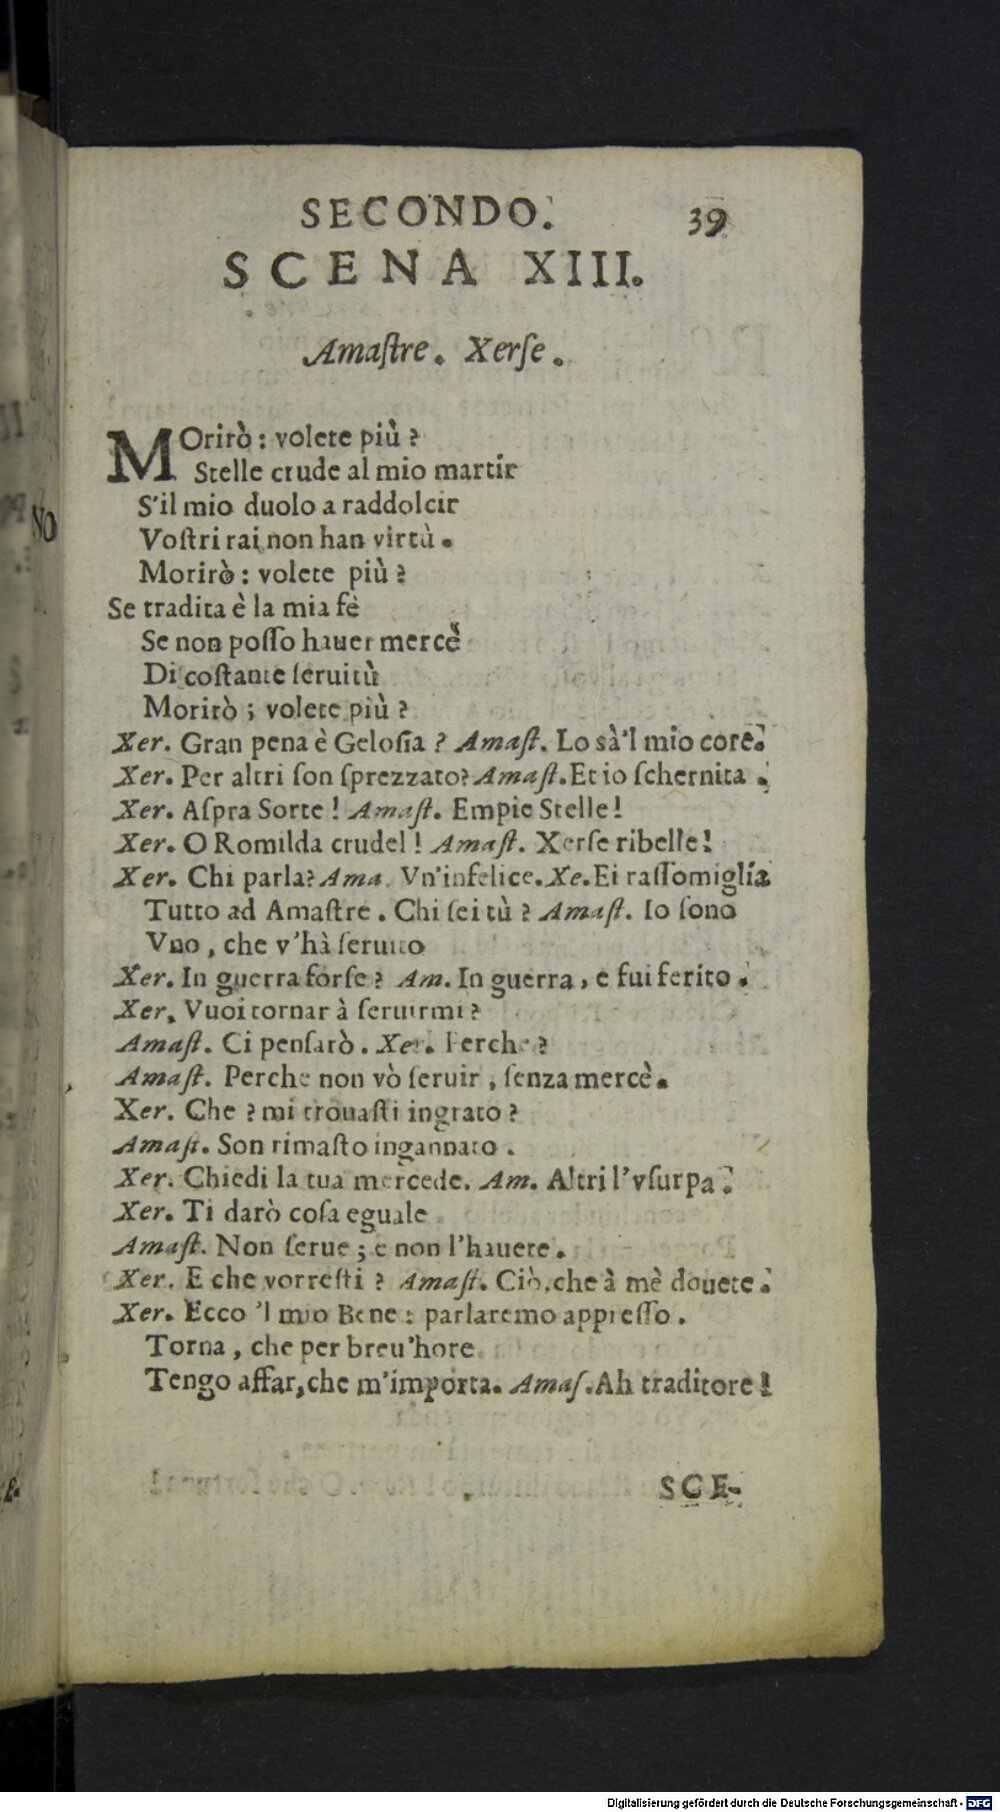 SECONDO. 39
SCENA XIII.
Amaſtre. Xerſe.
MOrirò: volete più?
Stelle crude al mio martir
S'il mio duolo a raddolcir
Voſtri rai non han virtù.
Morirò: volete più?
Se tradita è la mia fè
Se non poſſo hauer mercè
Di coſtante ſeruitù
Morirò; volete più?
Xer. Gran pena è Geloſia? Amaſt. Lo sà'l mio core.
Xer. Per altri ſon ſprezzato? Amaſt. Et io ſchernita.
Xer. Aſpra Sorte! Amaſt. Empie Stelle!
Xer. O Romilda crudel! Amaſt. Xerſe ribelle!
Xer. Chi parla? Ama. Vn'infelice. Xe. Ei raſſomiglia
Tutto ad Amaſtre. Chi ſei tù? Amaſt. Io ſono
Vno, che v'hà ſeruito
Xer. In guerra forſe? Am. In guerra, e fui ferito.
Xer. Vuoi tornar à ſeruirmi?
Amaſt. Ci penſarò. Xer. Perche?
Amaſt. Perche non vò ſeruir, ſenza mercè.
Xer. Che? mi trouaſti ingrato?
Amaſt. Son rimaſto ingannato.
Xer. Chiedi la tua mercede. Am. Altri l'vſurpa.
Xer. Ti darò coſa eguale
Amaſt. Non ſerue; e non l'hauete.
Xer. E che vorreſti? Amaſt. Ciò, che à mè douete.
Xer. Ecco 'l mio Bene: parlaremo appreſſo.
Torna, che per breu'hore
Tengo affar, che m'importa. Amaſ. Ah traditore!
SCE-
Digitalisierung gefördert durch die Deutsche Forschungsgemeinschaft - DFG